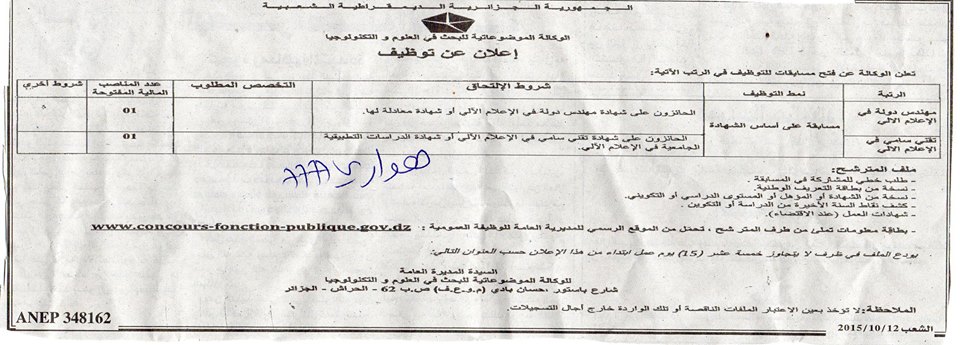 الجمهورية الجزائرية الديمقراطية الشعبية
الوكالة الموضوعاتية للبحث في العلوم و التكنولوجيا
إعلان عن توظيف
تعلن الوكالة عن فتح مسابقات للتوظيف في الرتب الآتية:
الرتبة نمط التوظيف شروط الإلتحاق التخصص المطلوب عدد المناصب المالية المفتوحة شروط أخرى
مهندس دولة في الإعلام الآلي مسابقة على أساس الشهادة الحائزون على شهادة مهندس دولة في الإعلام الآلي أو شهادة معادلة لها. 01
تقني سامي في الإعلام الآلي الحائزون على شهادة تقني سامي في الإعلام الآلي أو شهادة الدراسات التطبيقية الجامعية في الإعلام الآلي. 01
هواري
ملف المترشح:
- طلب خطي للمشاركة في المسابقة.
- نسخة من بطاقة التعريف الوطنية.
- نسخة من الشهادة أو المؤهل أو المستوى الدراسي أو التكويني.
- كشف نقاط السنة الأخيرة من الدراسة أو التكوين.
- شهادات العمل (عند الاقتضاء).
- بطاقة معلومات تملئ من طرف المترشح، تحمل من الموقع الرسمي للمديرية العامة للوظيفة العمومية : www.concours-fonction-publique.gov.dz
يودع الملف في ظرف لا يتجاوز خمسة عشر (15) يوم عمل ابتداء من هذا الإعلان حسب العنوان التالي:
السيدة المديرة العامة
للوكالة الموضوعاتية للبحث في العلوم و التكنولوجيا
شارع باستور، حسان بادي (م.و.ع.ف) ص.ب 62 - الحراش - الجزائر
الملاحظة: لا تؤخذ بعين الإعتبار الملفات الناقصة أو تلك الواردة خارج آجال التسجيلات.
الشعب 2015/10/12
ANEP 348162